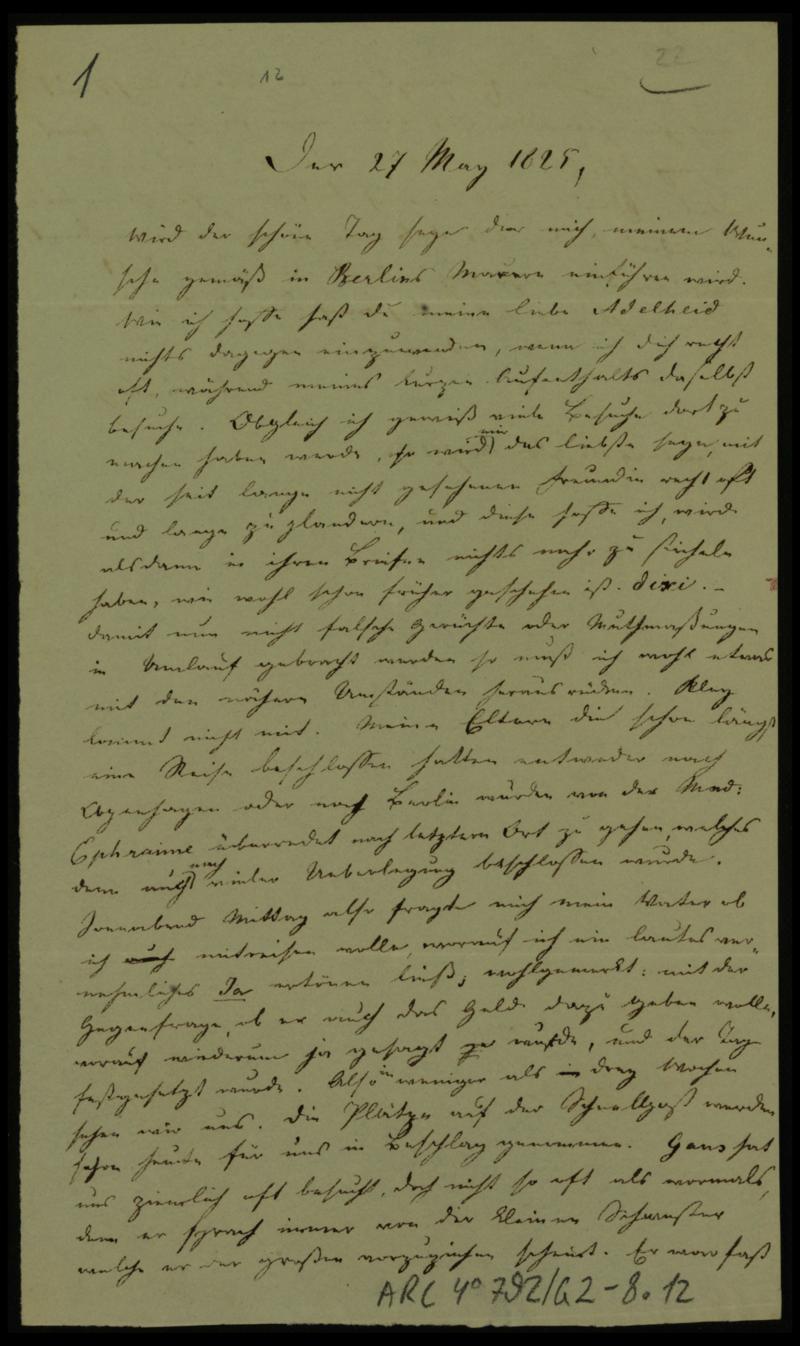 1
12
22
Der 27 May 1825,
wird der schöne Tag seyn der mich, meinem Wun-
sche gemäß in Berlins Mauern einführen wird.
Wie ich hoffe hast du meine liebe Adelheid
nichts dagegen einzuwenden, wenn ich dich recht
oft, während meines kurzen Aufenthalts daselbst
besuche. Obgleich ich gewiß viele Besuche dort zu
machen haben werde, so wird mir das liebste seyn, mit
der seit lange nicht gesehenen Freundin recht oft
und lange zu plaudern, und diese hoffe ich, wird
alsdann in ihren Briefen nichts mehr zu sticheln
haben, wie wohl schon früher geschehen ist. dixi. –
Damit nun nicht falsche Gerüchte oder Muthmaßungen
in Umlauf gebracht werden so muß ich wohl etwas
mit den nähern Umständen herausrücken. Kley
kommt nicht mit. Meine Eltern die schon längst
eine Reise beschlossen hatten entweder nach
Copenhagen oder nach Berlin wurden von der Mad:
Ephraime überredet nach letztern Ort zu gehen, welches
denn auch nach vieler Ueberlegung beschlossen wurde.
Sonnabend Mittag also fragte mich mein Vater ob
ich auch mitreisen wolle, worauf ich ein lautes ver-
nehmliches Ja ertönen ließ; wohlgemerkt: mit der
Gegenfrage, ob er auch das Geld dazu geben wolle,
worauf wiederum ja gesagt wurde, und der Tag
festgesetzt wurde. Also in weniger als in drey Wochen
sehen wir uns. Die Plätze auf der Schnellpost werden
schon heute für uns in Beschlag genommen. Gans hat
uns ziemlich oft besucht, doch nicht so oft als vormals,
denn er sprach immer von der kleinen Schwester
welche er der großen vorzuziehen scheint. Er war fast
ARC 4° 792/G2-8.12